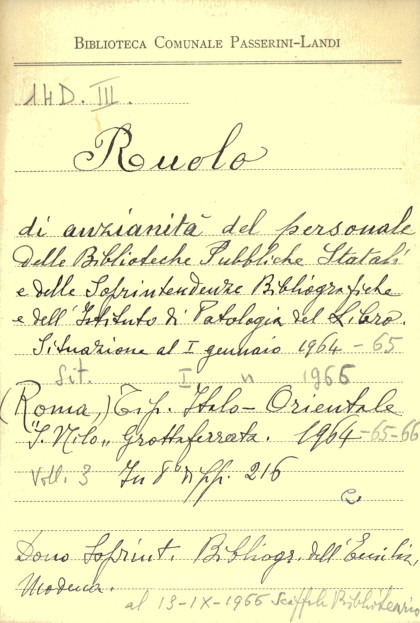 BIBLIOTECA COMUNALE PASSERINI-LANDI
14D. III.
Ruolo
di anzianità del personale
delle Biblioteche Pubbliche Statali
e delle Soprintendenze Bibliografiche
e dell'Istituto di Patologia del Libro.
Situazione al I gennaio 1964 - 65
Sit. I n 1966
(Roma,) Tip. Italo-Orientale
"S. Nilo" Grottaferrata. 1964-65-66
Voll. 3 In 8° di pp. 216
Dono Soprint. Bibliogr. dell'Emilia,
Modena.
al 13-IX-1966 Scaffali Bibliotecario